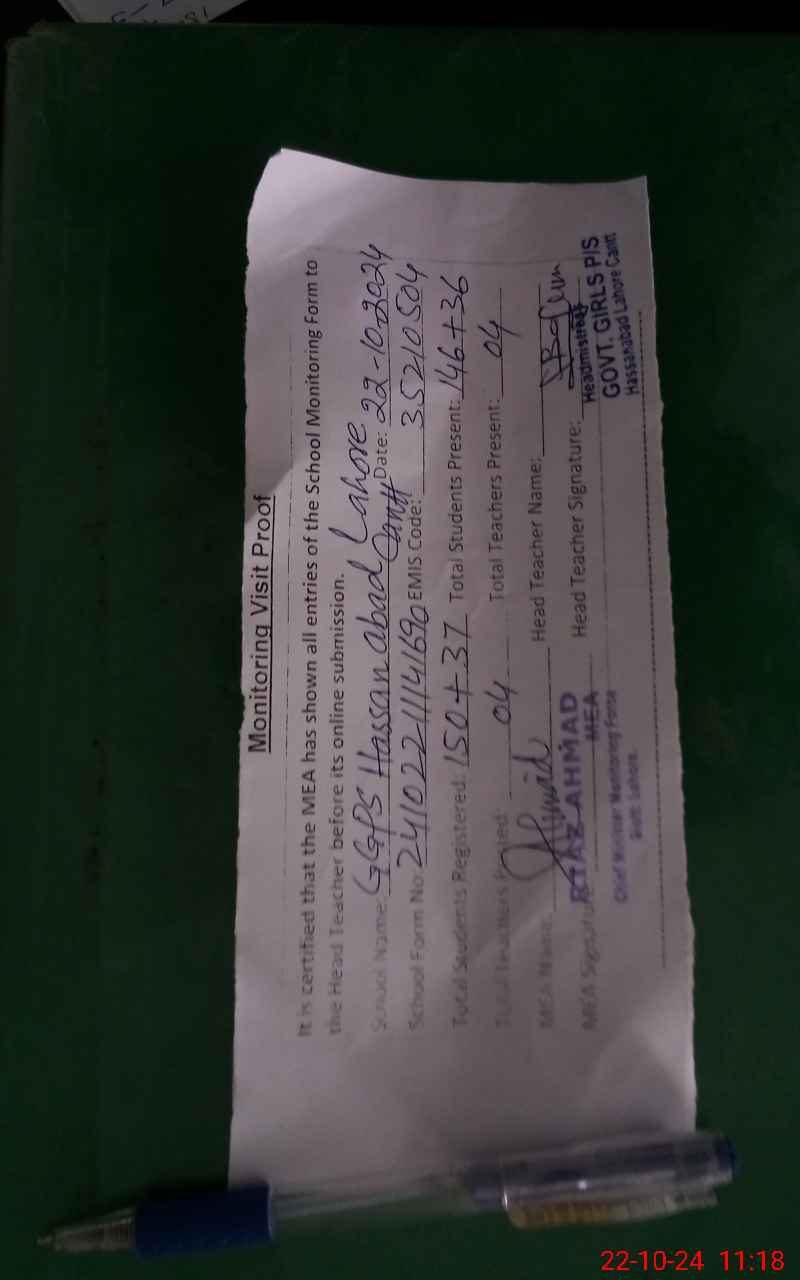 Monitoring Visit Proof
It is certified that the MEA has shown all entries of the School Monitoring Form to
the Head Teacher before its online submission.
School Name: GGPS Hassanabad Lahore Cantt Date: 22-10-2024
School Form No: 241022111141690 EMIS Code: 35210504
Total Students Registered: 150+37 Total Students Present: 146+36
Total Teachers Posted: 04 Total Teachers Present: 04
MEA Name: Head Teacher Name:
MEA Signature: Head Teacher Signature:
RIAZ AHMAD
MEA
Chief Minister Monitoring Force
Distt: Lahore.
Headmistress
GOVT. GIRLS P/S
Hassanabad Lahore Cantt
22-10-24 11:18